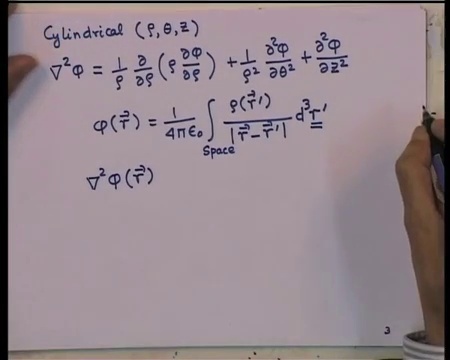 Cylindrical (ρ, θ, z)
∇²φ = 1/ρ ∂/∂ρ (ρ ∂φ/∂ρ) + 1/ρ² ∂²φ/∂θ² + ∂²φ/∂z²
φ(r⃗) = 1/4πε₀ ∫_Space ρ(r⃗′)/|r⃗−r⃗′| d³r′
∇²φ(r⃗)
3